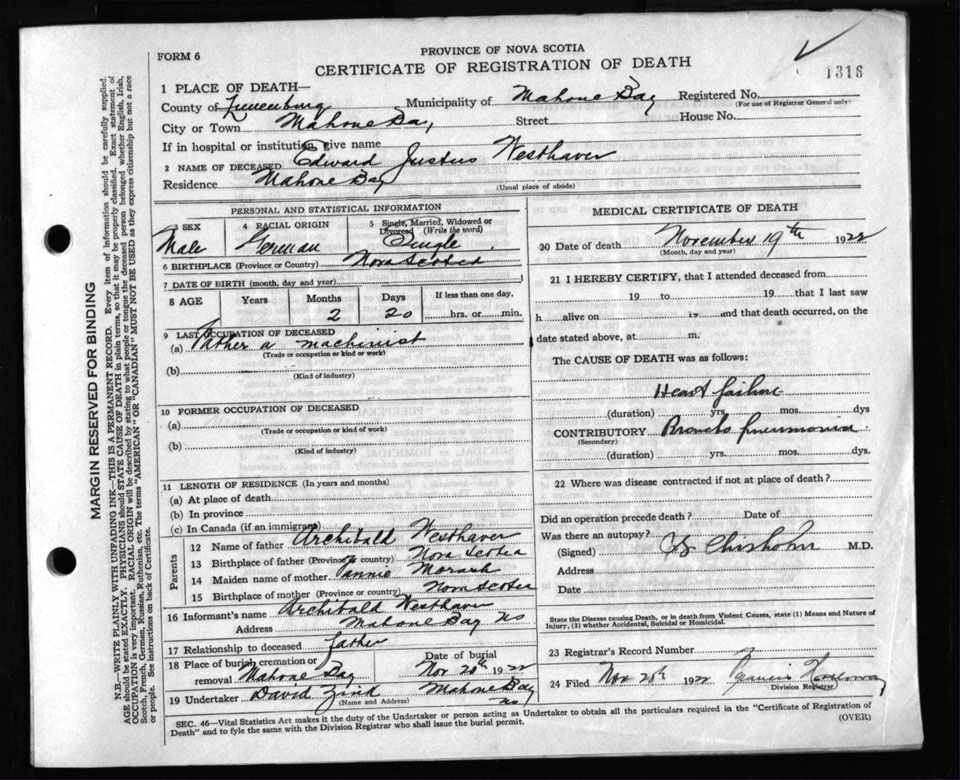 PROVINCE OF NOVA SCOTIA
FORM 6
CERTIFICATE OF REGISTRATION OF DEATH
1316
1 PLACE OF DEATH—
County of Lunenburg Municipality of Mahone Bay Registered No.
(For use of Registrar General only)
City or Town Mahone Bay Street House No.
If in hospital or institution, give name
2 NAME OF DECEASED Edward Justus Westhaver
Residence Mahone Bay
(Usual place of abode)
PERSONAL AND STATISTICAL INFORMATION
3 SEX 4 RACIAL ORIGIN 5 Single, Married, Widowed or Divorced (Write the word)
Male German Single
6 BIRTHPLACE (Province or Country) Nova Scotia
7 DATE OF BIRTH (month, day and year)
8 AGE Years Months Days If less than one day,
2 20 hrs. or min.
9 LAST OCCUPATION OF DECEASED
(a) Father a machinist
(Trade or occupation or kind or work)
(b)
(Kind of industry)
10 FORMER OCCUPATION OF DECEASED
(a)
(Trade or occupation or kind of work)
(b)
(Kind of industry)
11 LENGTH OF RESIDENCE (In years and months)
(a) At place of death
(b) In province
(c) In Canada (if an immigrant)
Parents
12 Name of father Archibald Westhaver
13 Birthplace of father (Province or country) Nova Scotia
14 Maiden name of mother Annie
15 Birthplace of mother (Province or country) Nova Scotia
16 Informant's name Archibald Westhaver
Address Mahone Bay NS
17 Relationship to deceased father
18 Place of burial cremation or removal Mahone Bay Date of burial Nov 20th 1922
19 Undertaker David Zink Mahone Bay NS
(Name and Address)
MEDICAL CERTIFICATE OF DEATH
20 Date of death November 19th 1922
(Month, day and year)
21 I HEREBY CERTIFY, that I attended deceased from
19 to 19 that I last saw
h alive on 19 and that death occurred, on the
date stated above, at m.
The CAUSE OF DEATH was as follows:
Heart failure
(duration) yrs. mos. dys
CONTRIBUTORY Broncho pneumonia
(Secondary)
(duration) yrs. mos. dys.
22 Where was disease contracted if not at place of death?
Did an operation precede death? Date of
Was there an autopsy?
(Signed) Chisholm M.D.
Address
Date
State the Disease causing Death, or in death from Violent Causes, state (1) Means and Nature of
Injury, (2) whether Accidental, Suicidal or Homicidal.
23 Registrar's Record Number
24 Filed Nov 20th 1922 Francis
Division Registrar
SEC. 46—Vital Statistics Act makes it the duty of the Undertaker or person acting as Undertaker to obtain all the particulars required in the "Certificate of Registration of
Death" and to fyle the same with the Division Registrar who shall issue the burial permit. (OVER)
MARGIN RESERVED FOR BINDING
N.B.—WRITE PLAINLY WITH UNFADING INK—THIS IS A PERMANENT RECORD. Every item of information should be carefully supplied.
AGE should be stated EXACTLY. PHYSICIANS should STATE CAUSE OF DEATH in plain terms, so that it may be properly classified. Exact statement of
OCCUPATION is very important. RACIAL ORIGIN will be described by stating to what people or tongue the deceased person belonged whether English, Irish,
Scotch, French, German, Russian, Ruthenian, etc. The terms "AMERICAN" OR "CANADIAN" MUST NOT BE USED as they express citizenship but not a race
or people. See instructions on back of Certificate.